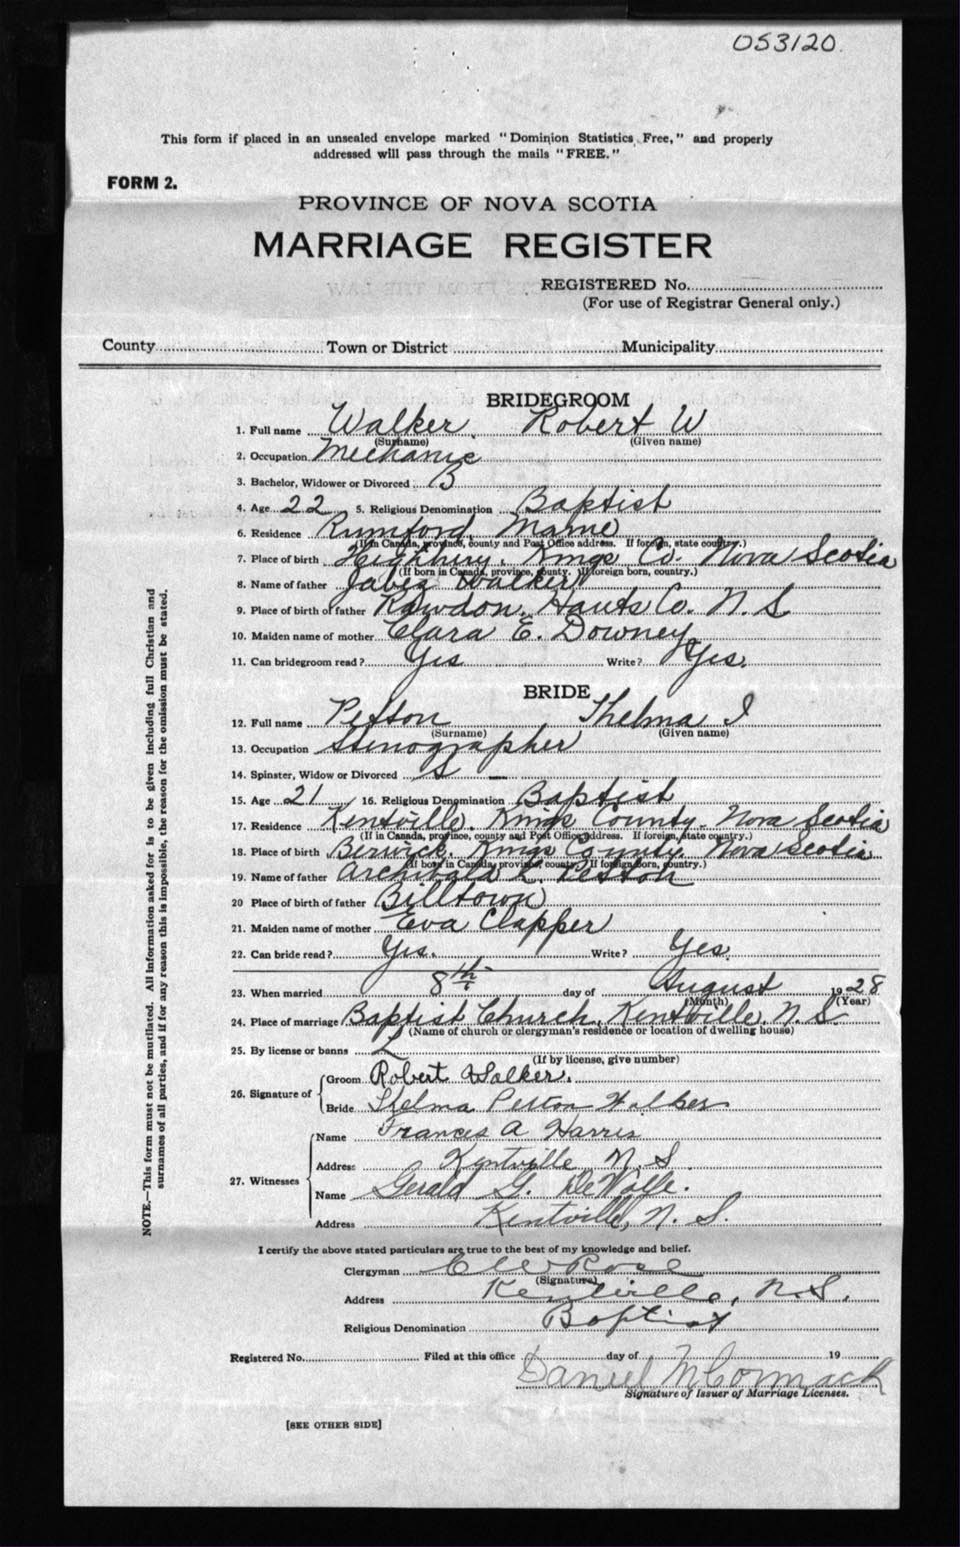 053120
This form if placed in an unsealed envelope marked "Dominion Statistics Free," and properly
addressed will pass through the mails "FREE."
FORM 2.
PROVINCE OF NOVA SCOTIA
MARRIAGE REGISTER
REGISTERED No.
(For use of Registrar General only.)
County Town or District Municipality
BRIDEGROOM
1. Full name Walker Robert W
(Surname) (Given name)
2. Occupation Mechanic
3. Bachelor, Widower or Divorced B
4. Age 22 5. Religious Denomination Baptist
6. Residence Rumford, Maine
(If in Canada, province, county and Post Office address. If foreign, state country.)
7. Place of birth Kings Co. Nova Scotia
(If born in Canada, province, county. If foreign born, country.)
8. Name of father Jabez Walker
9. Place of birth of father Rawdon, Hants Co. N. S.
10. Maiden name of mother Clara E. Downey
11. Can bridegroom read? Yes Write? Yes.
BRIDE
12. Full name Pelton Thelma I
(Surname) (Given name)
13. Occupation Stenographer
14. Spinster, Widow or Divorced S
15. Age 21 16. Religious Denomination Baptist
17. Residence Kentville, Kings County, Nova Scotia
(If in Canada, province, county and Post Office address. If foreign, state country.)
18. Place of birth Berwick, Kings County, Nova Scotia
(If born in Canada, province, county. If foreign born, country.)
19. Name of father Archibald Pelton
20 Place of birth of father Billtown
21. Maiden name of mother Eva Clapper
22. Can bride read? Yes. Write? Yes.
23. When married 8th day of August 1928
(Month) (Year)
24. Place of marriage Baptist Church, Kentville, N.S.
(Name of church or clergyman's residence or location of dwelling house)
25. By license or banns L
(If by license, give number)
26. Signature of Groom Robert Walker.
Bride Thelma Pelton Walker
27. Witnesses Name Frances A Harris
Address Kentville N. S.
Name Gerald G. DeWolfe.
Address Kentville, N. S.
I certify the above stated particulars are true to the best of my knowledge and belief.
Clergyman E W Rose
(Signature)
Address Kentville, N.S.
Religious Denomination Baptist
Registered No. Filed at this office day of 19
Daniel McCormack
Signature of Issuer of Marriage Licenses.
[SEE OTHER SIDE]
NOTE.—This form must not be mutilated. All information asked for is to be given including full Christian and
surnames of all parties, and if for any reason this is impossible, the reason for the omission must be stated.